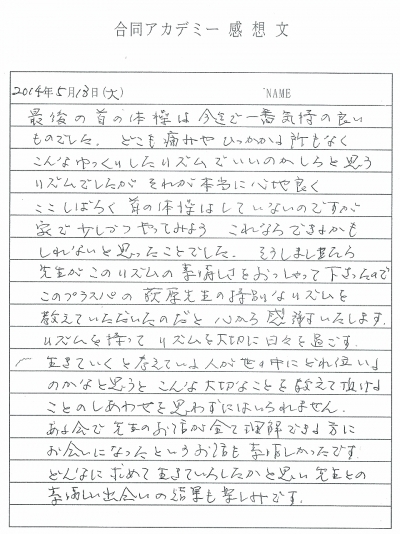 合同アカデミー 感 想 文
2014年5月13日(火) NAME
最後の首の体操は今迄で一番気持の良い
ものでした。どこも痛みやひっかかる所もなく
こんなゆっくりしたリズムでいいのかしらと思う
リズムでしたが それが本当に心地良く
ここしばらく首の体操はしていないのですが
家で少しづつやってみよう これならできるかも
しれないと思ったことでした。そうしましたら
先生がこのリズムの素晴しさをおっしゃって下さったので
このプラスパの荻原先生の特別なリズムを
教えていただいたのだと心から感謝いたします。
リズムを持って リズムを大切に日々を過ごす。
生きていくと考えている人が世の中にどれ位いる
のかなと思うと こんな大切なことを教えて頂ける
ことのしあわせを思わずにはいられません。
ある会で先生のお話が全て理解できる方に
お会いになったというお話も素晴しかったです。
どんなに求めて生きていらしたかと思い 先生との
素晴しい出会いの結果も楽しみです。